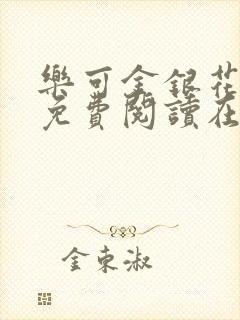 樂可金銀花
免費閱讀在
金東淑